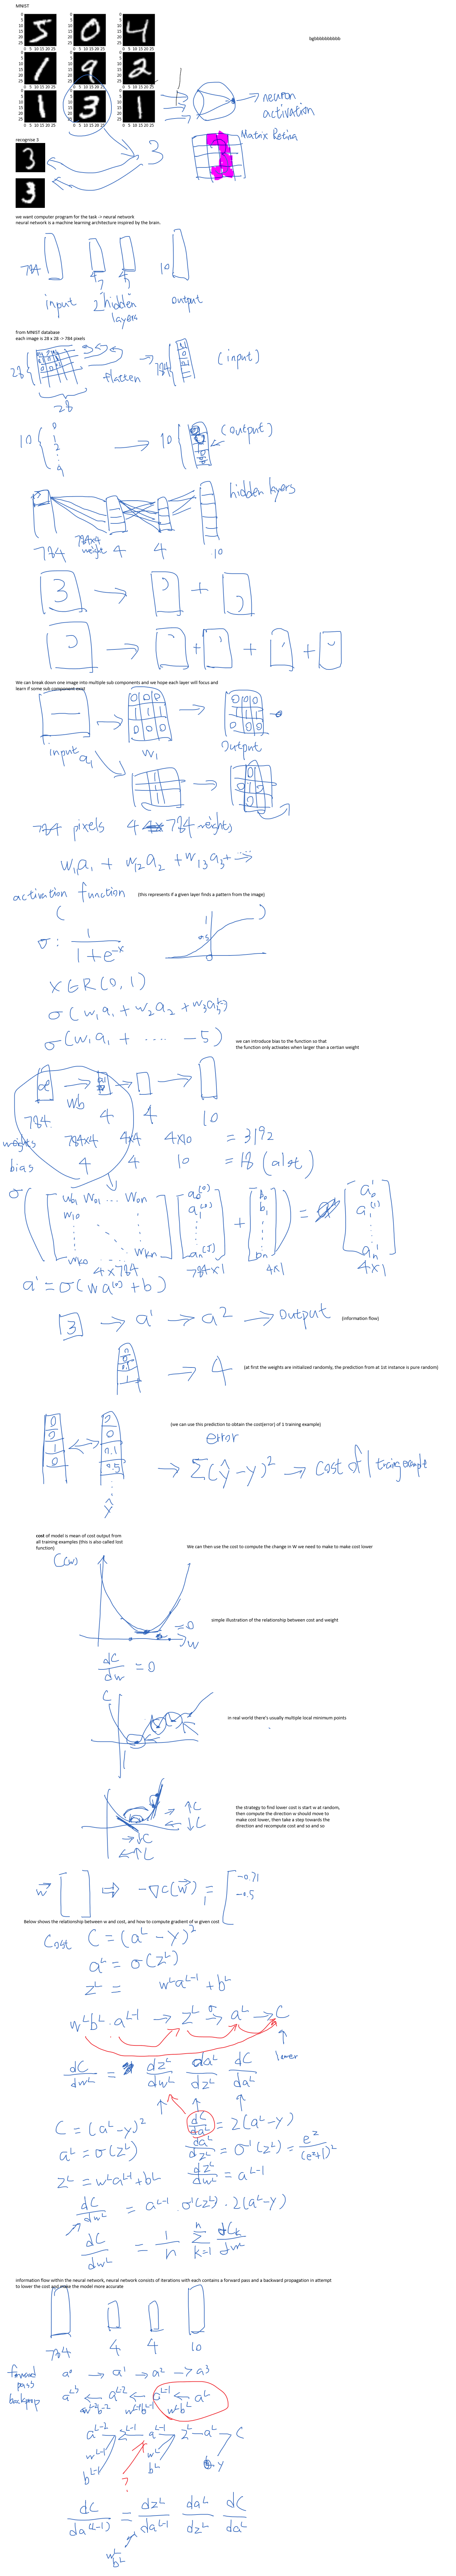 MNIST
bgbbbbbbbbbb
neuron
activation
Matrix Retina
recognise 3
3
we want computer program for the task -> neural network
neural network is a machine learning architecture inspired by the brain.
784
4
4
10
input
2 hidden
layers
output
from MNIST database
each image is 28 x 28 -> 784 pixels
28
28
flatten
784
(input)
10
0
1
2
9
10
(output)
hidden layers
784
784x4
weight
4
4
10
3
+
+
+
+
We can break down one image into multiple sub components and we hope each layer will focus and
learn if some sub component exist
0 0 0
1 1 1
0 0 0
input
a1
W1
Output
784 pixels
784 weights
activation function
(this represents if a given layer finds a pattern from the image)
σ: 1 / (1 + e^-x)
x ∈ R (0, 1)
σ(w1a1 + w2a2 + w3a3+
σ(w1a1 + .... -5)
we can introduce bias to the function so that
the function only activates when larger than a certian weight
wb
784
4
4
10
weights 784x4 4x4 4x10 = 3192
bias 4 4 10 = 18 (a lot)
4x784
784x1
4x1
4x1
a¹ = σ(wa⁽⁰⁾ + b)
3 → a¹ → a² → Output
(information flow)
→ 4
(at first the weights are initialized randomly, the prediction from at 1st instance is pure random)
(we can use this prediction to obtain the cost(error) of 1 training example)
error
→ Σ(ŷ-y)² → cost of 1 training example
ŷ
cost of model is mean of cost output from
all training examples (this is also called lost
function)
We can then use the cost to compute the change in W we need to make to make cost lower
C(w)
=0
w
simple illustration of the relationship between cost and weight
dC/dw = 0
C
in real world there's usually multiple local minimum points
the strategy to find lower cost is start w at random,
then compute the direction w should move to
make cost lower, then take a step towards the
direction and recompute cost and so and so
→ ↑C
← ↓C
→ ↓C
w ⇒ -∇C(w) =
-0.5
Below shows the relationship between w and cost, and how to compute gradient of w given cost
Cost C = (a^L - y)²
a^L = σ(z^L)
z^L = w^L a^L-1 + b^L
w^L b^L · a^L-1 → z^L → a^L → C
σ
lower
dC/dw^L = dz^L/dw^L da^L/dz^L dC/da^L
C = (a^L - y)² dC/da^L = 2(a^L - y)
a^L = σ(z^L) da^L/dz^L = σ^-1(z^L) = e^z/(e^z+1)²
z^L = w^L a^L-1 + b^L dz^L/dw^L = a^L-1
dC/dw^L = a^L-1 · σ^1(z^L) · 2(a^L - y)
dC/dw^L = 1/n Σ k=1 n dC_k/dw^L
information flow within the neural network, neural network consists of iterations with each contains a forward pass and a backward propagation in attempt
to lower the cost and make the model more accurate
784
4
4
10
forward
pass
a⁰ → a¹ → a² → a³
backprop
a^L-3 ← a^L-2 ← a^L-1 ← a^L
w^L-2 b^L-2 w^L-1 b^L-1 w^L b^L
a^L-2 z^L-1 a^L-1 z^L - a^L - C
w^L-1 w^L
b^L-1 b^L y
?
dC/da^(L-1) = dz^L/da^L-1 da^L/dz^L dC/da^L
w^L
b^L